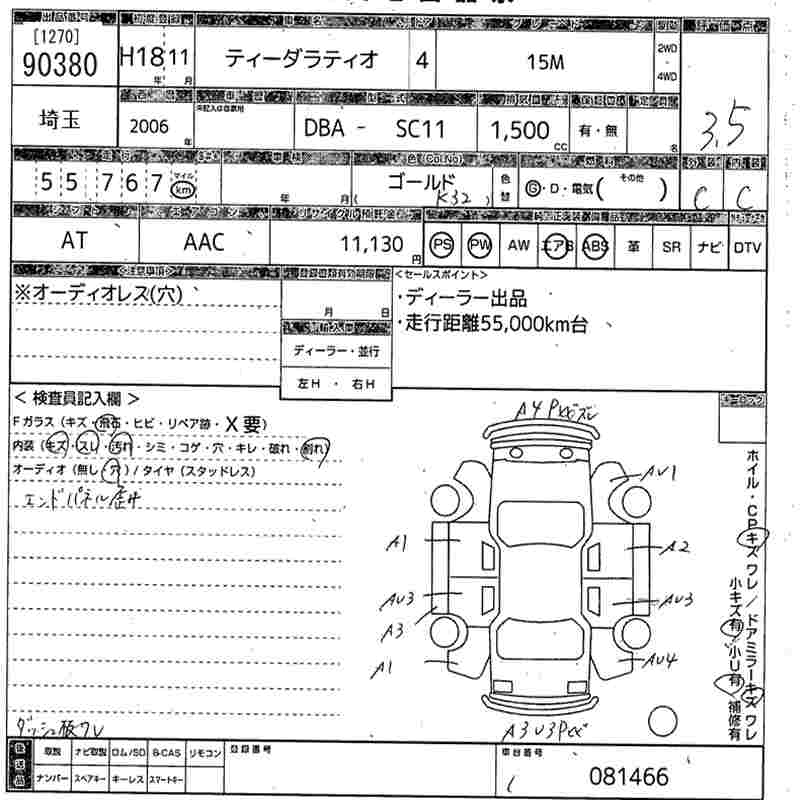 [1270]
90380
H18 11 ティーダラティオ 4 15M 2WD・4WD
年 月
3.5
埼玉 2006 年 ※記入は自家用 DBA - SC11 1,500 CC 有・無 名
55767 マイル km 年 月 ゴールド (K32) 色替 G・D・電気( その他 ) C C
AT AAC 11,130 円 PS PW AW エアB ABS 革 SR ナビ DTV
<注意事項>
※オーディオレス(穴)
月 日
ディーラー・並行
左H ・ 右H
<セールスポイント>
・ディーラー出品
・走行距離55,000km台
< 検査員記入欄 >
Fガラス (キズ・飛石・ヒビ・リペア跡・X要)
内装 (キズ・スレ・汚れ・シミ・コゲ・穴・キレ・破れ・割れ)
オーディオ (無し・穴) / タイヤ (スタッドレス)
エンドパネル歪み
ダッシュ板ワレ
A1
AU3
A3
A1
AU1
A2
AU3
AU4
ホイル・CPキズ ワレ / ドアミラーキズ ワレ
小キズ有 小U有 補修有
取説 ナビ取説 ロム/SD B-CAS リモコン
ナンバー スペアキー キーレス スマートキー
登録番号
車台番号
081466